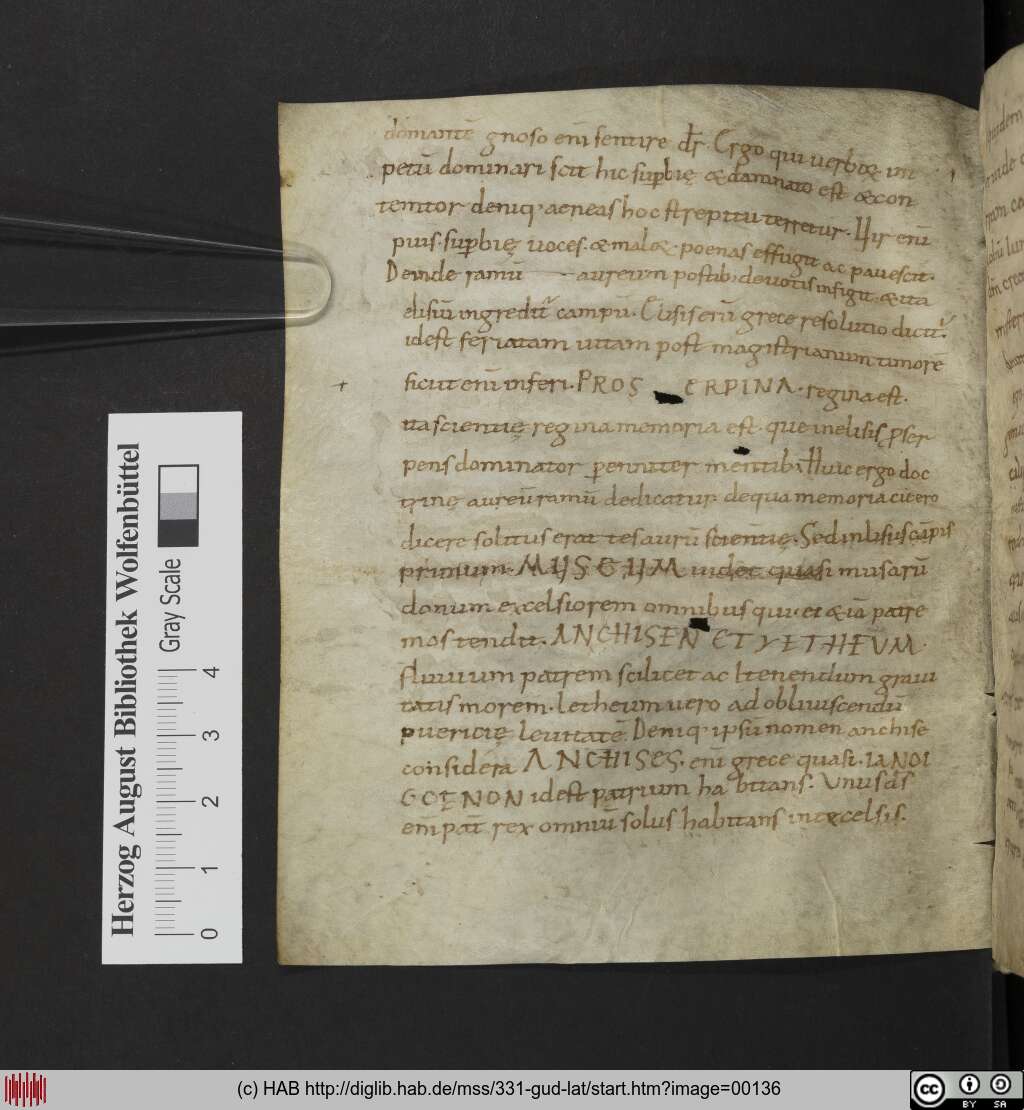 domantē gnoso enī sentire dr̄. Ergo qui uerboꝝ im
petū dominari scit hic supbię & damnato est & con
temtor deniq; aeneas hoc strepitu terretur. Hir enī
puis. supbię uoces. & maloꝝ. poenas effugit ac pauescit.
Deinde ramū aureum postib; deuotis infigit. & ita
elisiū ingreditur campū. Elisis enī grece resolutio dicitur.
idest feriatam uitam post magistrianum timorē
sicut enī inferi. PROS ERPINA. regina est.
ita scientię regina memoria est. que in elisis pser
pens dominator perenniter mentib; Huic ergo doc
trinę aureū ramū dedicatur de qua memoria cicero
dicere solitus erat tesaurū scientię. Sed in lisis cāpis
primum. MUSEUM uidet quasi musarū
donum excelsiorem omnibus qui. ei & iā patrē
mostendit. ANCHISEN ET YETHEUM.
fluuium patrem scilicet ac ltenendum graui
tatis morem. Letheum uero ad obliuiscendū
puericię leuitatē. Deniq; ipsū nomen anchise
considera ANCHISES. enī grece quasi. IANOI
GOENON idest patrium habitans. Unus ds̄
enī pat̄ rex omniū solus habitans in excelsis.
Herzog August Bibliothek Wolfenbüttel
Gray Scale
0 1 2 3 4
(c) HAB http://diglib.hab.de/mss/331-gud-lat/start.htm?image=00136
cc BY SA